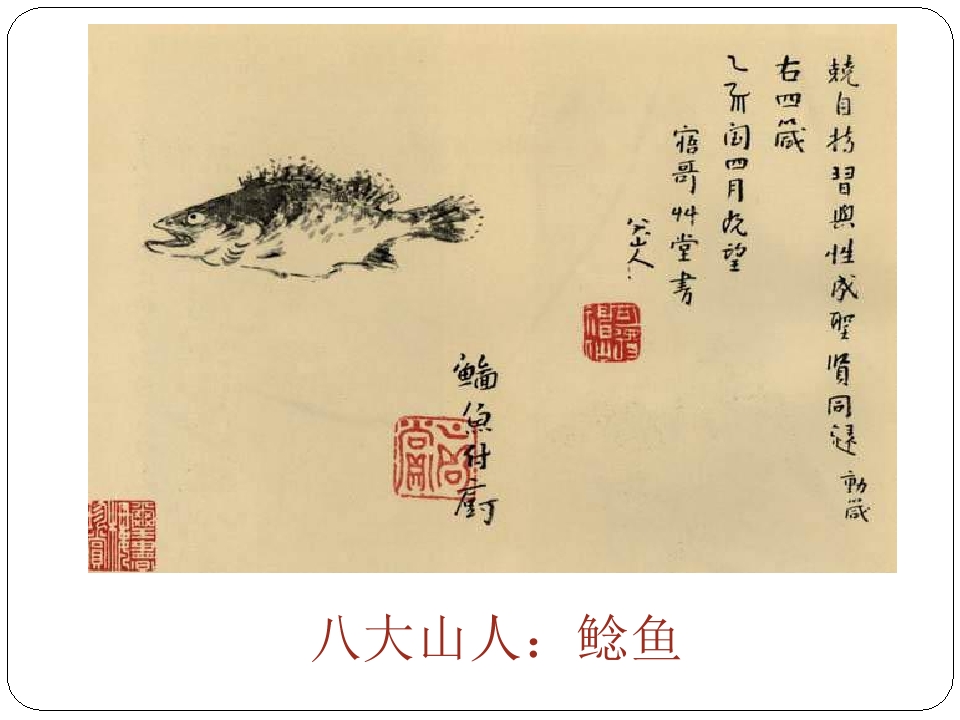 兢自持習與性成聖賢同歸 動箴
右四箴
乙亥閏四月既望
寤哥艸堂書
八大山人
魚付廚
八大山人：鲶鱼